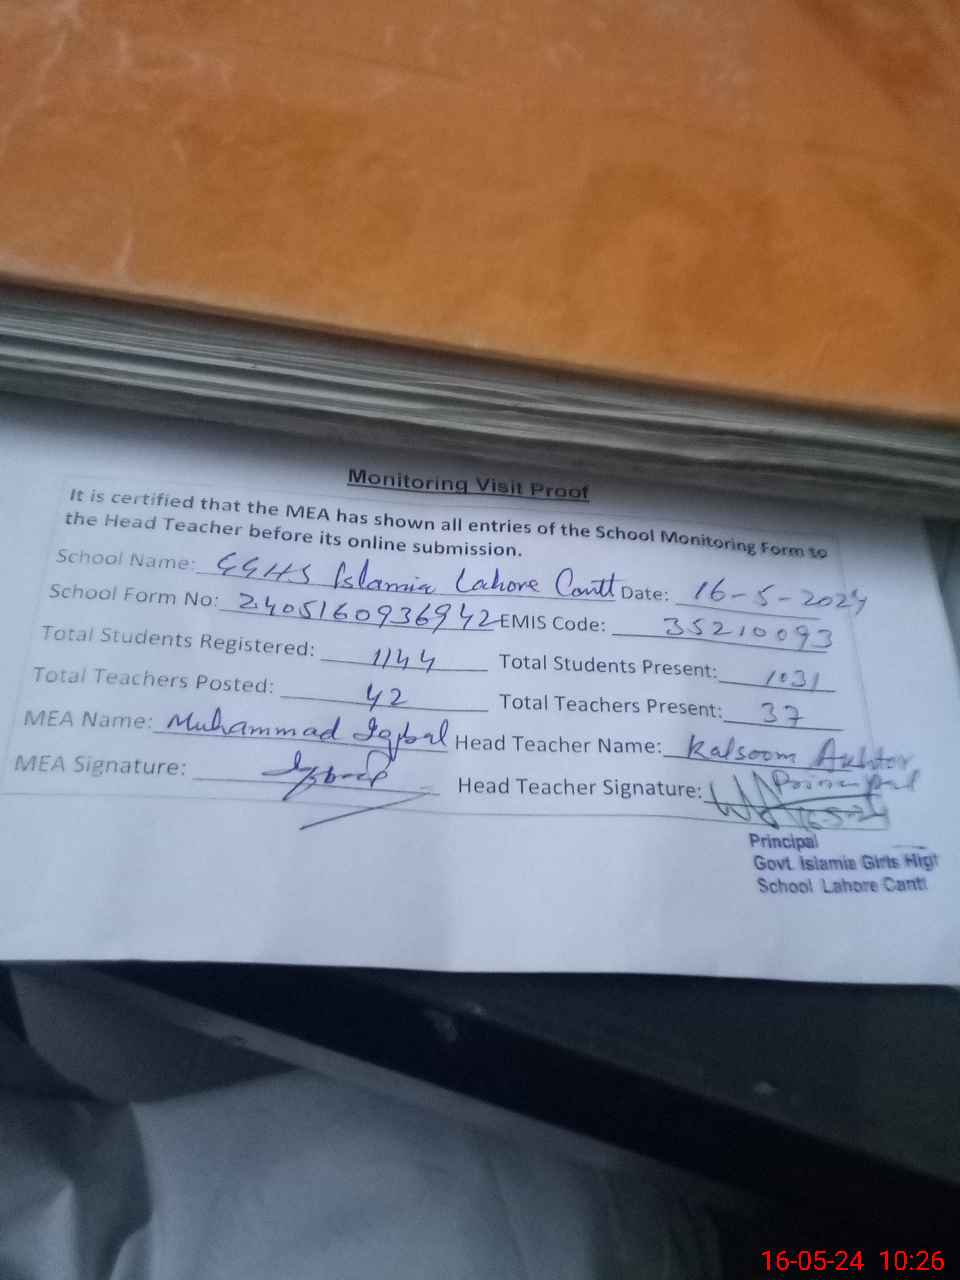 Monitoring Visit Proof
It is certified that the MEA has shown all entries of the School Monitoring Form to
the Head Teacher before its online submission.
School Name: GGHS Islamia Lahore Cantt Date: 16-5-2024
School Form No: 2405160936942 EMIS Code: 35210093
Total Students Registered: 1144 Total Students Present: 1031
Total Teachers Posted: 42 Total Teachers Present: 37
MEA Name: Muhammad Iqbal Head Teacher Name: Kalsoom Akhtar
MEA Signature: Iqbal Head Teacher Signature: Principal
16-5-24
Principal
Govt. Islamia Girls High
School Lahore Cantt
16-05-24 10:26